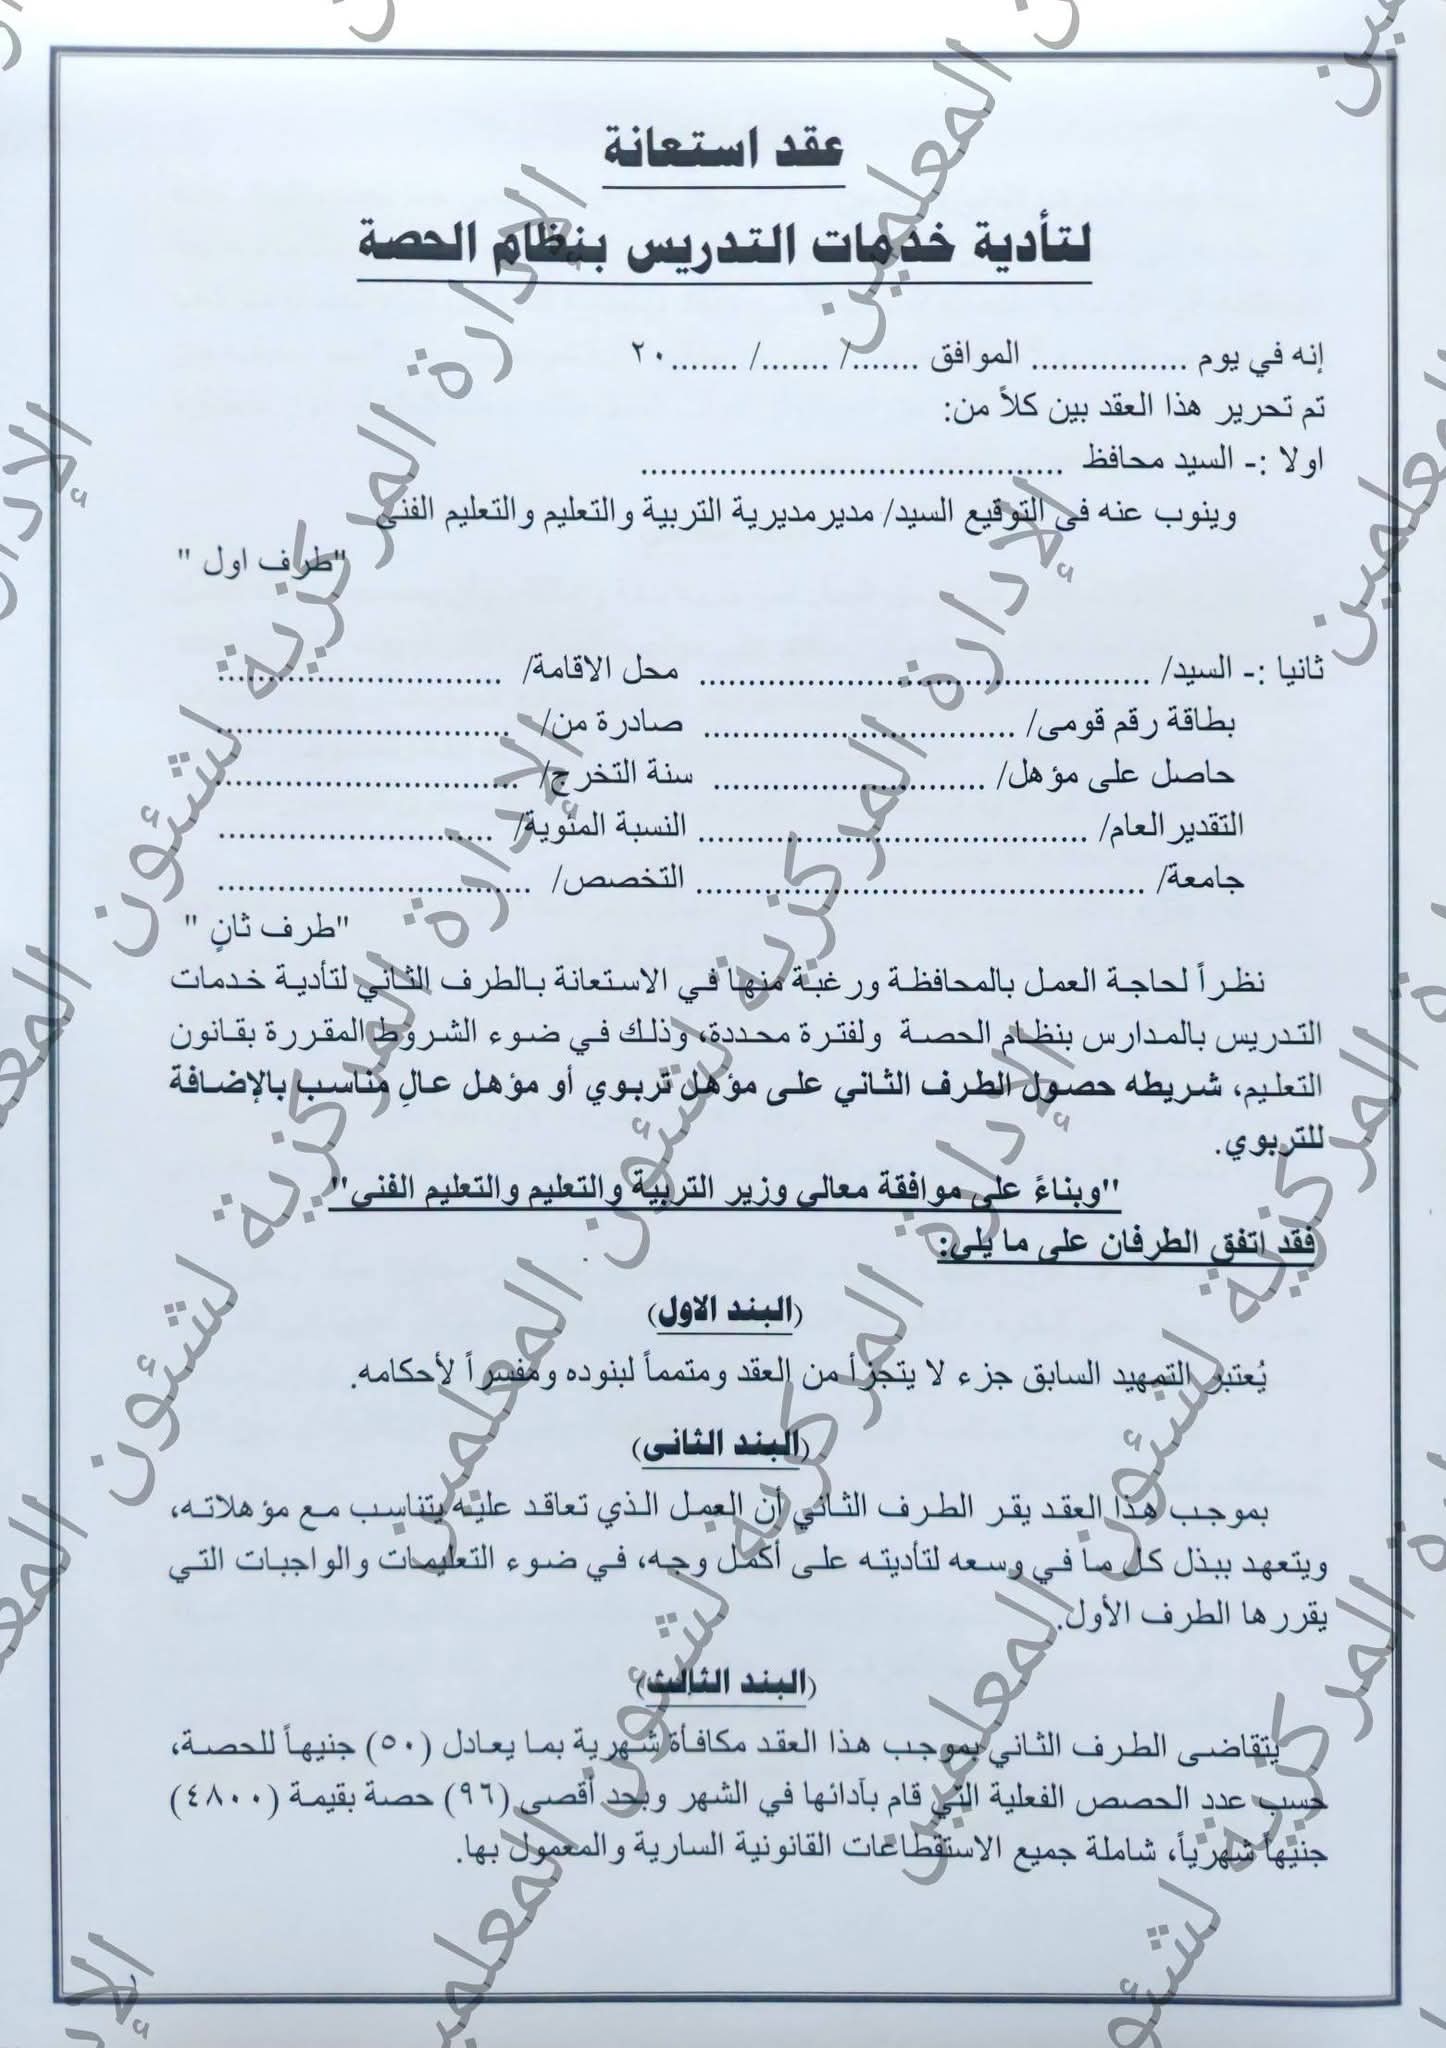 عقد استعانة
لتأدية خدمات التدريس بنظام الحصة
إنه في يوم ................ الموافق ......./ ......./ .......٢٠
تم تحرير هذا العقد بين كلاً من:
اولا :- السيد محافظ ..........................................
وينوب عنه فى التوقيع السيد/ مدير مديرية التربية والتعليم والتعليم الفنى
"طرف اول "
ثانيا :- السيد/ ............................................. محل الاقامة/ ............................
بطاقة رقم قومى/ ............................... صادرة من/ .............................
حاصل على مؤهل/ ........................... سنة التخرج/ ..............................
التقدير العام/ ....................................... النسبة المئوية/ ...........................
جامعة/ ............................................. التخصص/ ...............................
"طرف ثانٍ "
نظراً لحاجة العمل بالمحافظة ورغبة منها في الاستعانة بالطرف الثاني لتأدية خدمات
التدريس بالمدارس بنظام الحصة ولفترة محددة، وذلك في ضوء الشروط المقررة بقانون
التعليم، شريطه حصول الطرف الثاني على مؤهل تربوي أو مؤهل عالِ مناسب بالإضافة
للتربوي.
"وبناءً على موافقة معالي وزير التربية والتعليم والتعليم الفنى"
فقد اتفق الطرفان على ما يلى:
(البند الاول)
يُعتبر التمهيد السابق جزء لا يتجزأ من العقد ومتمماً لبنوده ومفسراً لأحكامه.
(البند الثانى)
بموجب هذا العقد يقر الطرف الثاني أن العمل الذي تعاقد عليه يتناسب مع مؤهلاته،
ويتعهد ببذل كل ما في وسعه لتأديته على أكمل وجه، في ضوء التعليمات والواجبات التي
يقررها الطرف الأول.
(البند الثالث)
يتقاضى الطرف الثاني بموجب هذا العقد مكافأة شهرية بما يعادل (٥٠) جنيهاً للحصة،
حسب عدد الحصص الفعلية التي قام بآدائها في الشهر وبحد أقصى (٩٦) حصة بقيمة (٤٨٠٠)
جنيهاً شهرياً، شاملة جميع الاستقطاعات القانونية السارية والمعمول بها.
الإدارة المركزية لشئون المعلمين